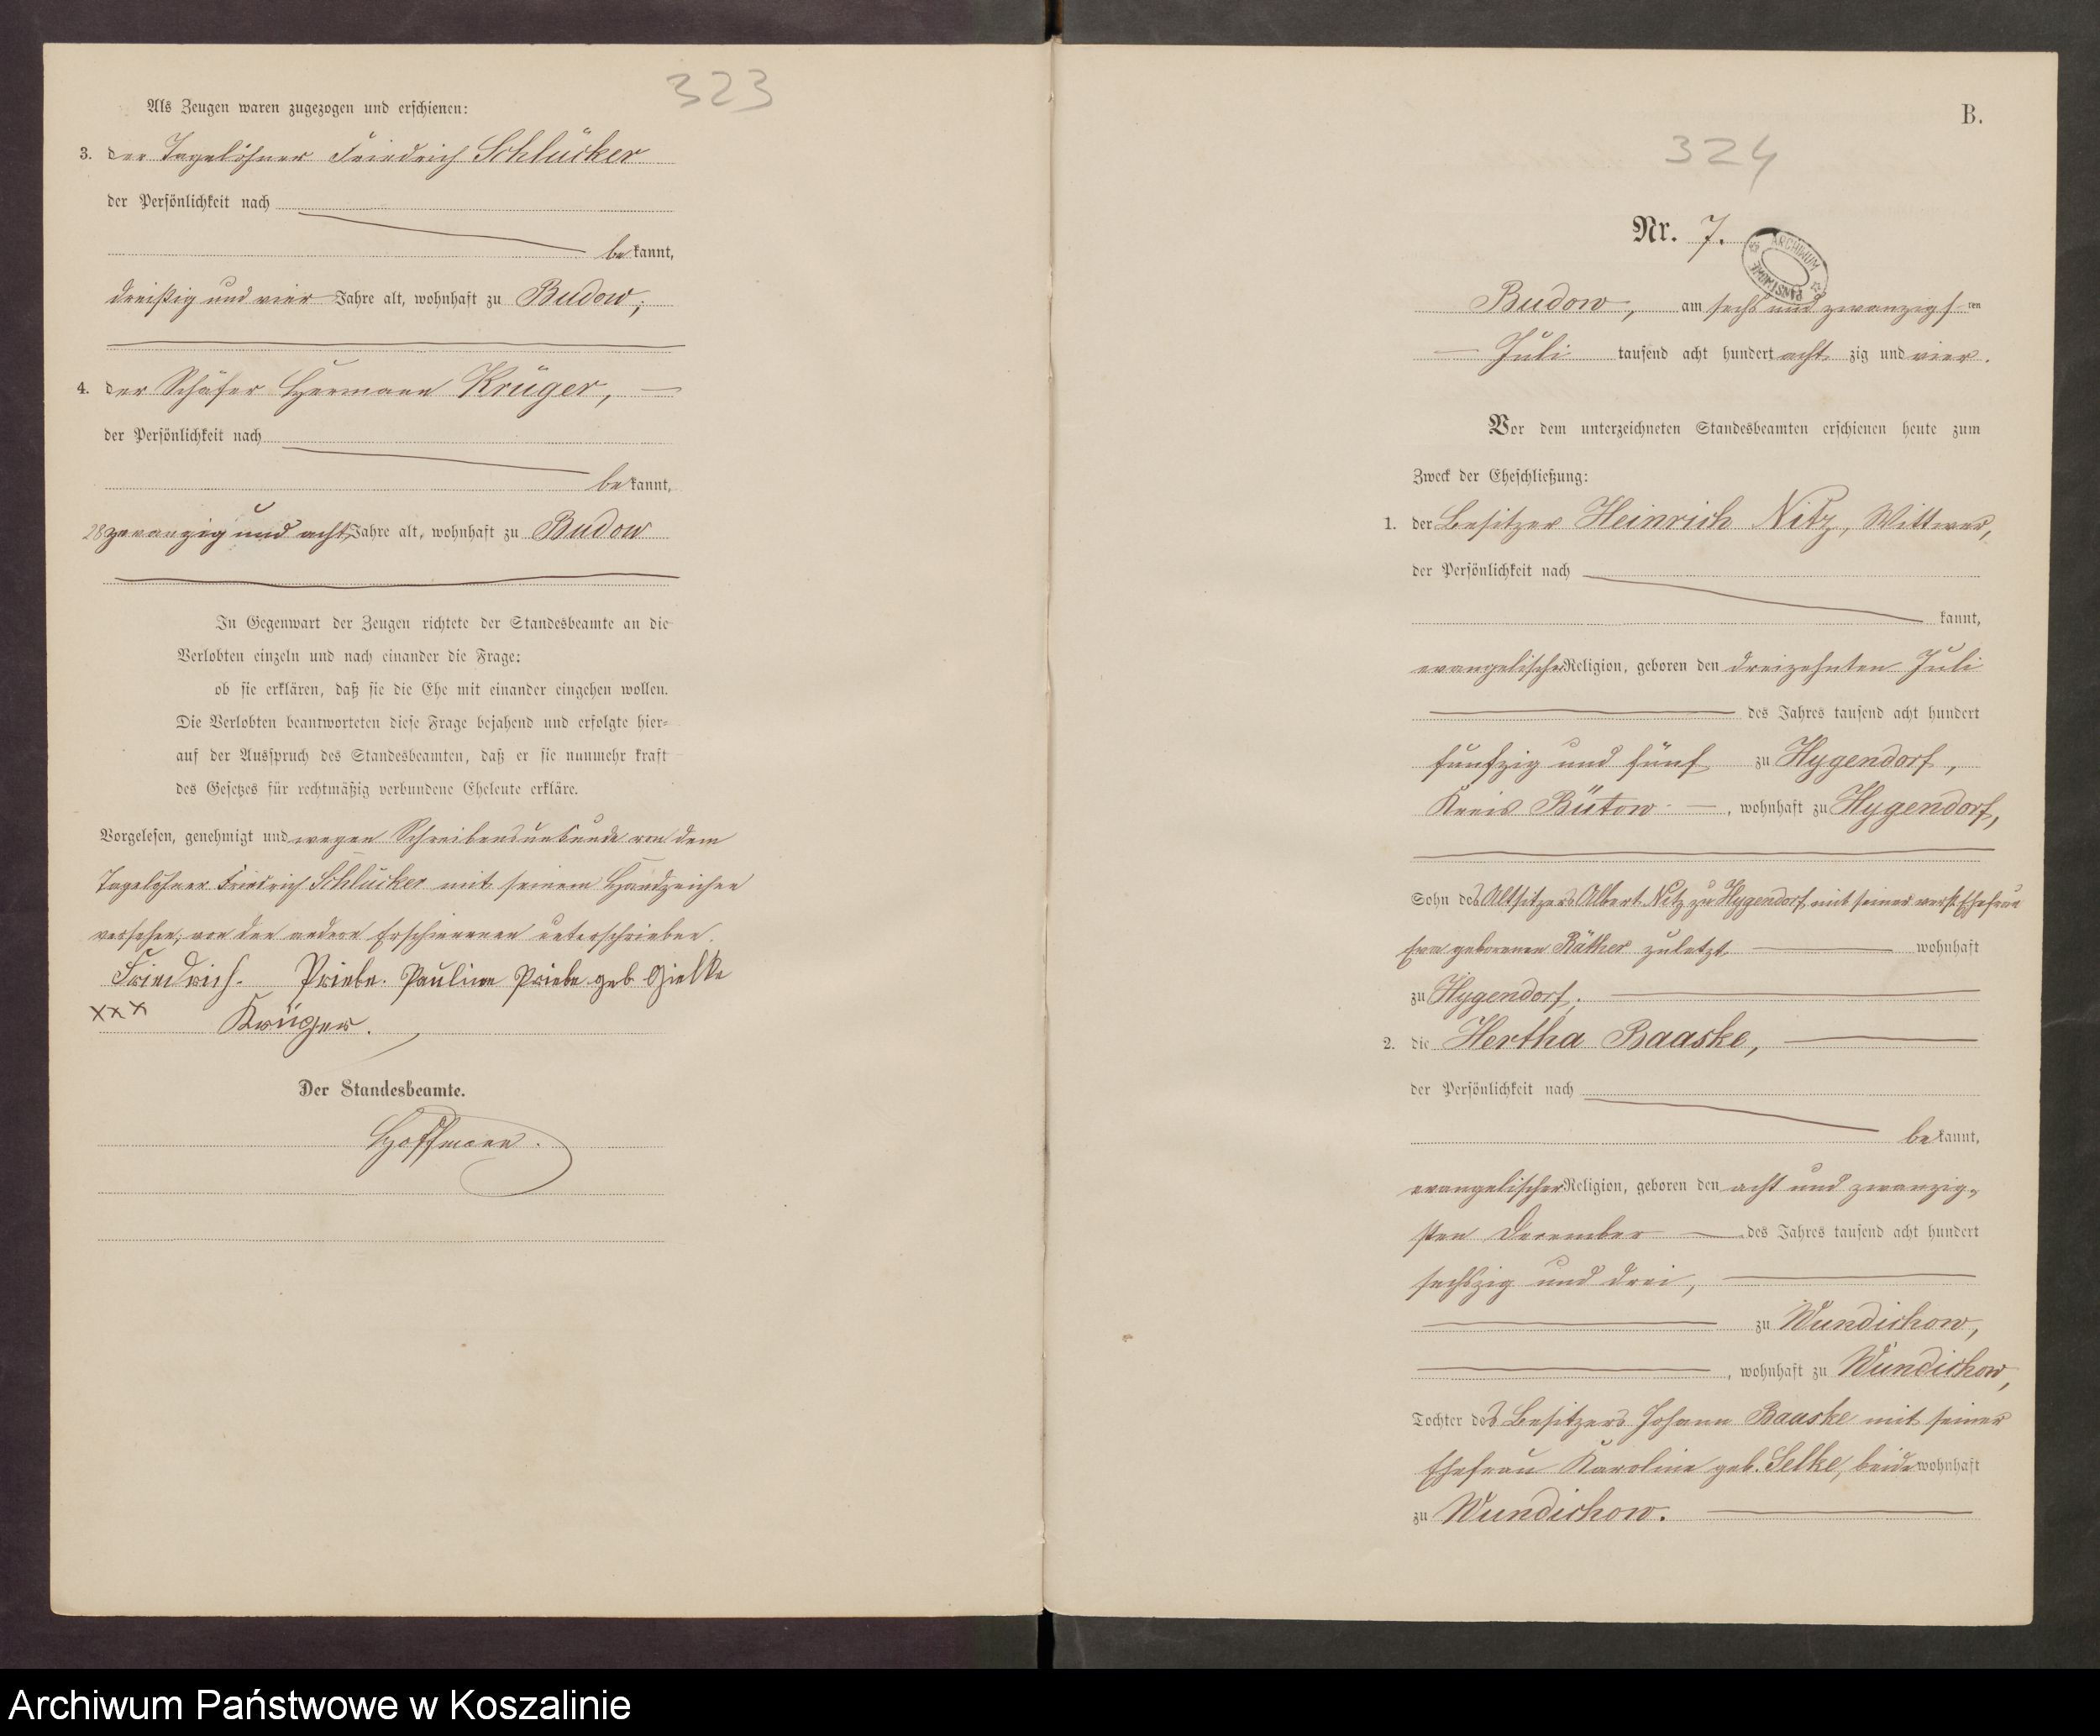 323
Als Zeugen waren zugezogen und erschienen:
3. der Tagelöhner Friedrich Schlücker
der Persönlichkeit nach
bekannt,
dreißig und vier Jahre alt, wohnhaft zu Budow;
4. der Schäfer Hermann Krüger,
der Persönlichkeit nach
bekannt,
28 zwanzig und acht Jahre alt, wohnhaft zu Budow
In Gegenwart der Zeugen richtete der Standesbeamte an die
Verlobten einzeln und nach einander die Frage:
ob sie erklären, daß sie die Ehe mit einander eingehen wollen.
Die Verlobten beantworteten diese Frage bejahend und erfolgte hier-
auf der Ausspruch des Standesbeamten, daß er sie nunmehr kraft
des Gesetzes für rechtmäßig verbundene Eheleute erkläre.
Vorgelesen, genehmigt und wegen Schreibensunkunde von dem
Tagelöhner Friedrich Schlücker mit seinem Handzeichen
versehen, von den andern Erschienenen unterschrieben.
Friedrich Priebe. Pauline Priebe geb Gielke
xxx Krüger.
Der Standesbeamte.
Hoffmann.
B.
324
Nr. 7.
ARCHIWUM PAŃSTWOWE
Budow, am sechs und zwanzigsten
Juli tausend acht hundert acht zig und vier.
Vor dem unterzeichneten Standesbeamten erschienen heute zum
Zweck der Eheschließung:
1. der Besitzer Heinrich Nitz, Wittwer,
der Persönlichkeit nach
kannt,
evangelischer Religion, geboren den dreizehnten Juli
des Jahres tausend acht hundert
fünfzig und fünf zu Hygendorf,
Kreis Bütow, wohnhaft zu Hygendorf,
Sohn des Altsitzers Albert Nitz zu Hygendorf mit seiner verst. Ehefrau
Eva geborenen Räther zuletzt wohnhaft
zu Hygendorf;
2. die Hertha Baaske,
der Persönlichkeit nach
bekannt,
evangelischer Religion, geboren den acht und zwanzig-
sten December des Jahres tausend acht hundert
sechszig und drei,
zu Wundichow,
, wohnhaft zu Wundichow,
Tochter des Besitzers Johann Baaske mit seiner
Ehefrau Karoline geb. Selke, beide wohnhaft
zu Wundichow.
Archiwum Państwowe w Koszalinie